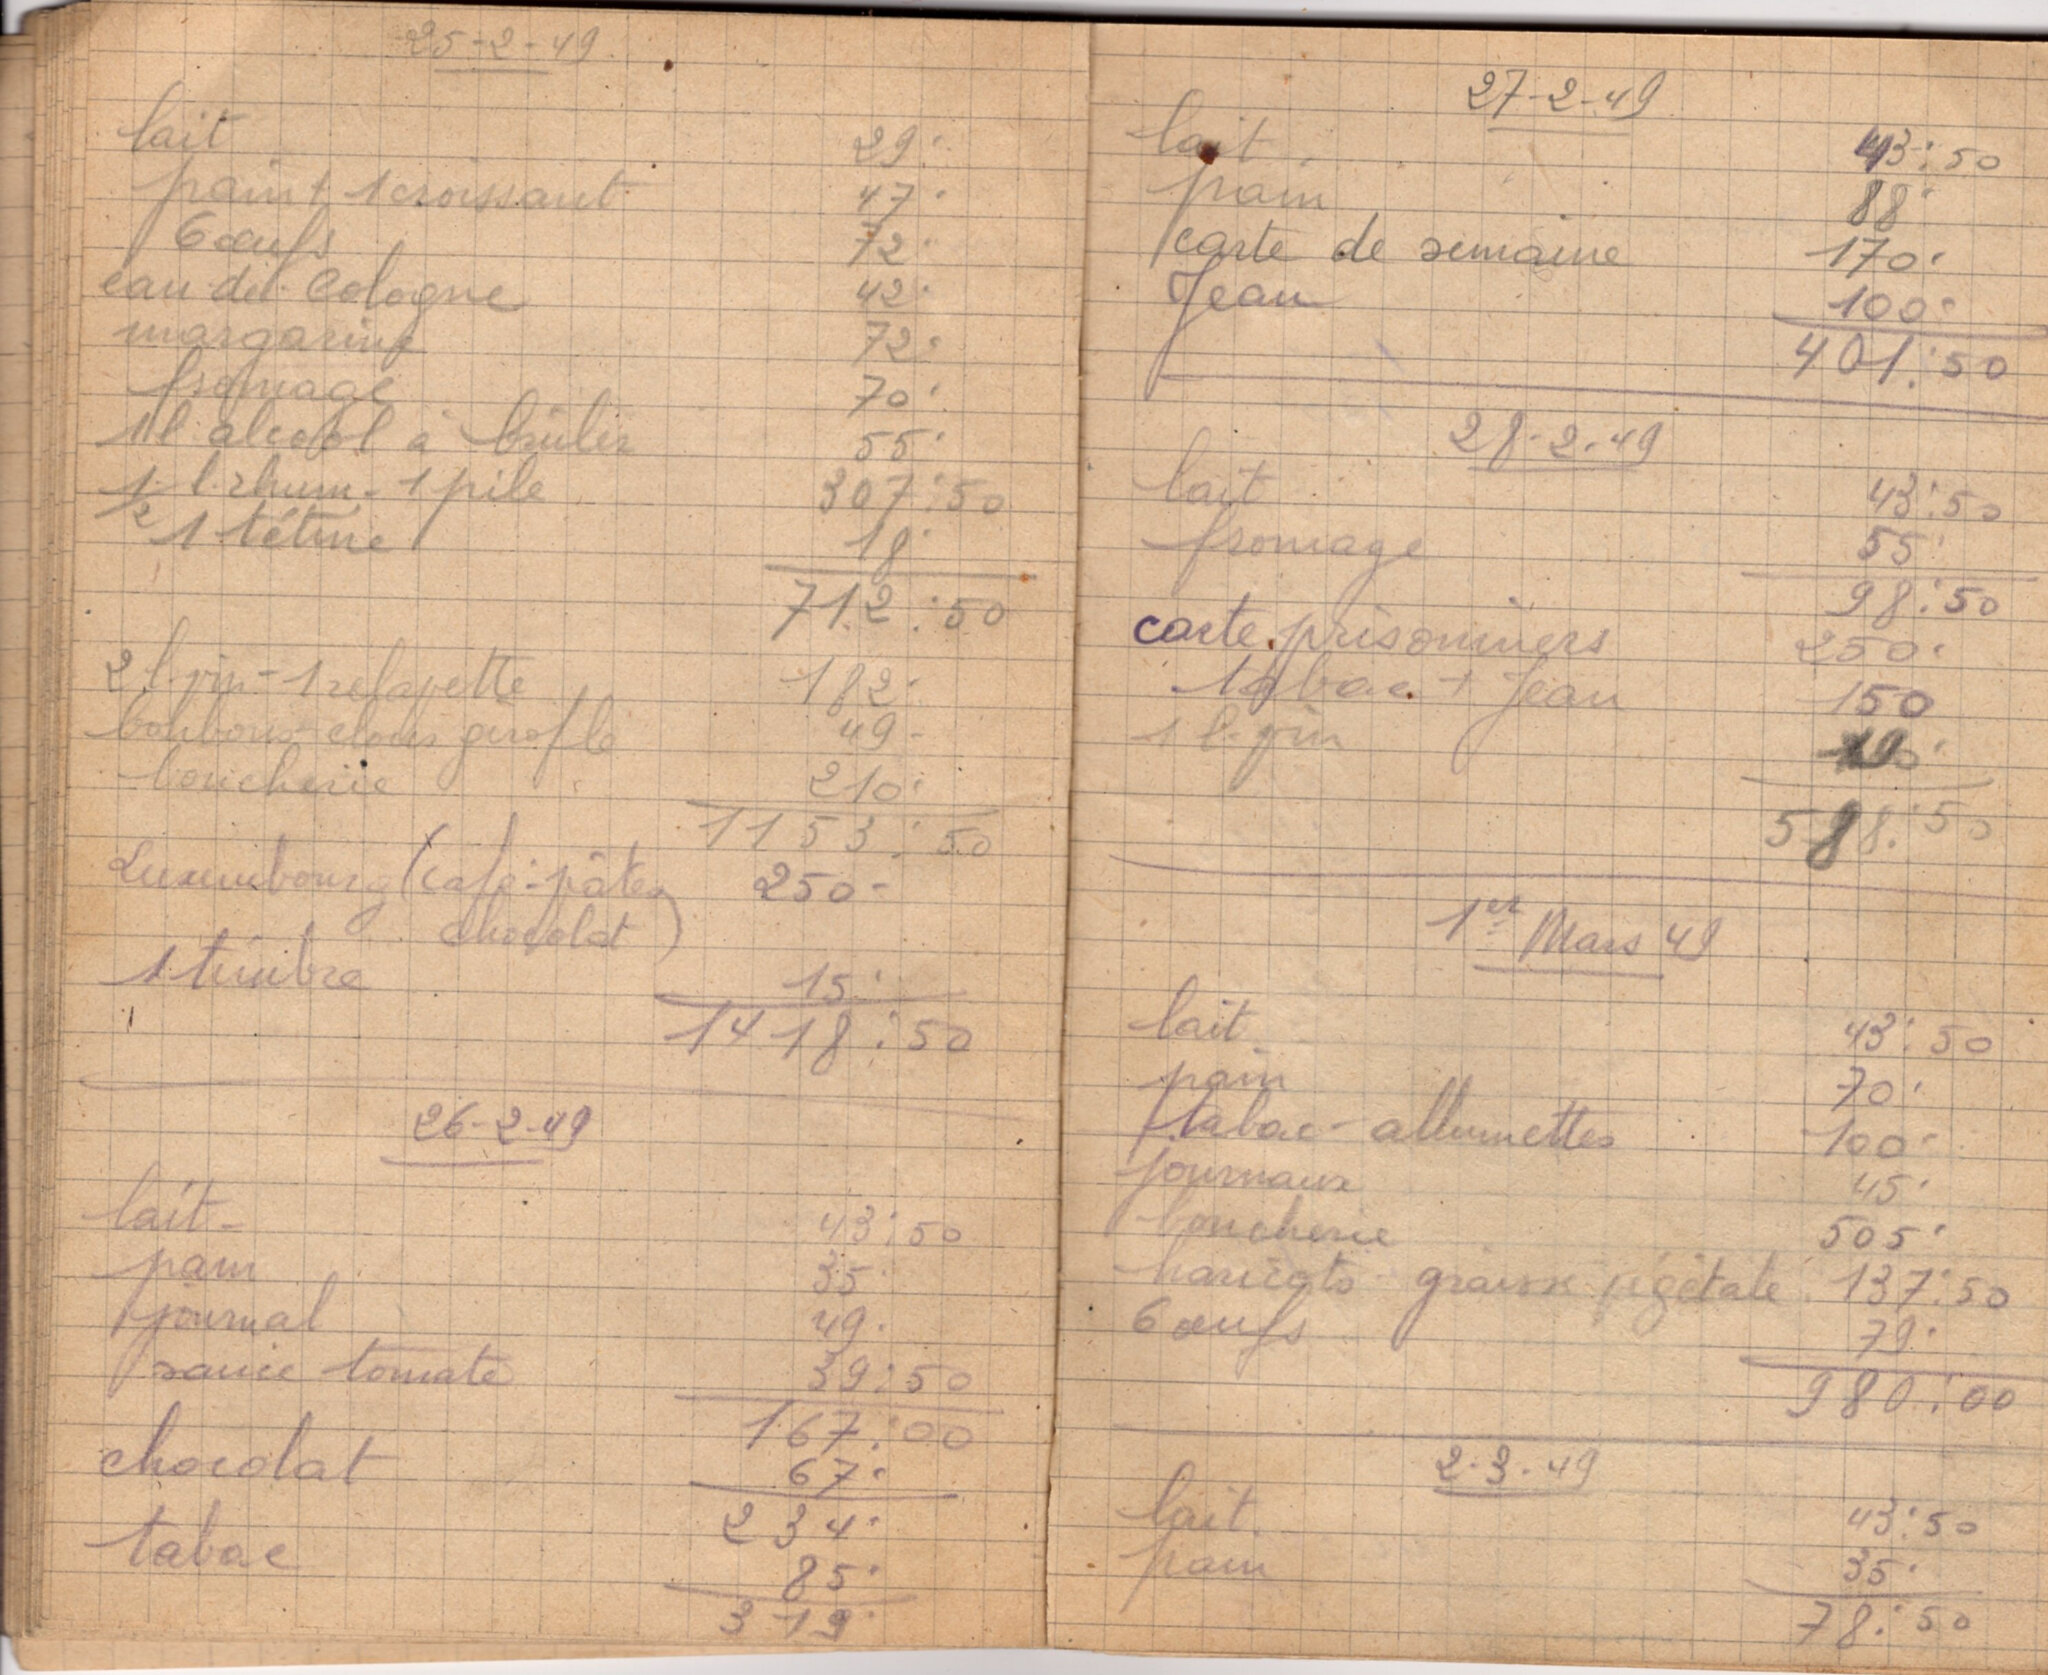 25-2-49
lait 29:
pain + 1 croissant 47:
6 œufs 72:
eau de Cologne 42:
margarine 72:
fromage 70:
1 l. alcool à brûler 55:
1/2 l. rhum - 1 pile 307:50
1 tétine 18:
712:50
2 l. vin - 1 relavette 182:
bonbons clous girofle 49-
boucherie 210:
1153:50
Luxembourg (café - pâtes 250-
chocolat)
1 timbre 15:
1418:50
26-2-49
lait - 43:50
pain 35:
journal 49.
sauce tomate 39:50
167:00
chocolat 67:
234:
tabac 85:
319:
27-2-49
lait 43:50
pain 88:
carte de semaine 170:
Jean 100:
401:50
28-2-49
lait 43:50
fromage 55:
98:50
carte prisonniers 250:
tabac + Jean 150
1 l. vin 90:
588:50
1er Mars 49
lait 43:50
pain 70:
tabac - allumettes 100:
journaux 45:
boucherie 505:
haricots - graisse végétale 137:50
6 œufs 79:
980:00
2-3-49
lait 43:50
pain 35:
78:50